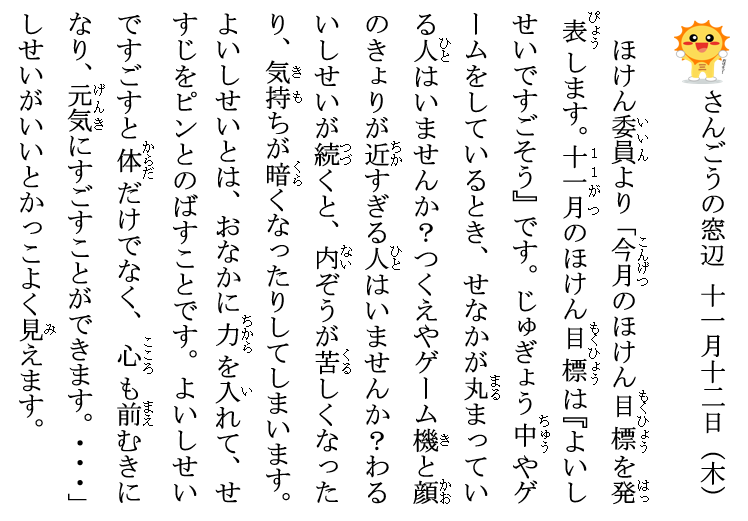 さんごうの窓辺　十一月十二日（木）
ほけん委員より「今月のほけん目標を発
表します。十一月のほけん目標は『よいし
せいですごそう』です。じゅぎょう中やゲ
ームをしているとき、せなかが丸まってい
る人はいませんか？つくえやゲーム機と顔
のきょりが近すぎる人はいませんか？わる
いしせいが続くと、内ぞうが苦しくなった
り、気持ちが暗くなったりしてしまいます。
よいしせいとは、おなかに力を入れて、せ
すじをピンとのばすことです。よいしせい
ですごすと体だけでなく、心も前むきに
なり、元気にすごすことができます。・・・」
しせいがいいとかっこよく見えます。